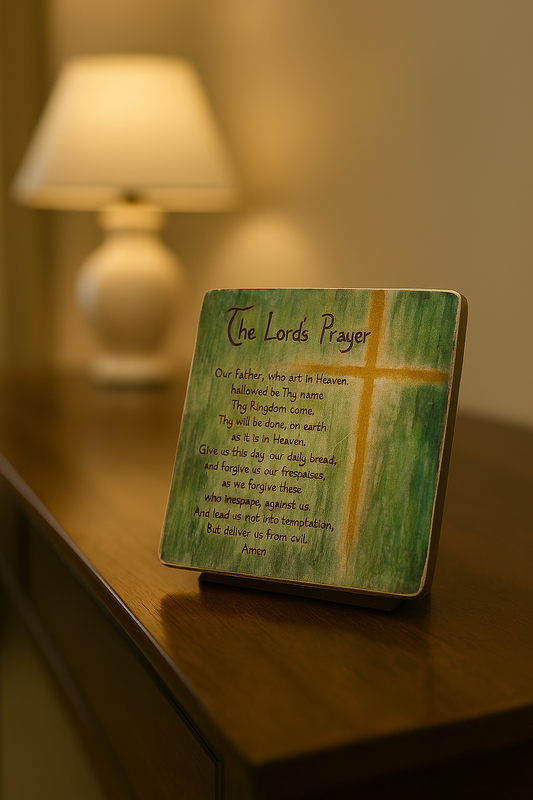 The Lord's Prayer
Our Father, who art in Heaven.
hallowed be Thy name
Thy Ringdom come.
Thy will be done, on earth
as it is in Heaven.
Give us this day our daily bread,
and forgive us our frespaises,
as we forgive these
who inespape, against us.
And lead us not into temptation,
But deliver us from cvil.
Amen